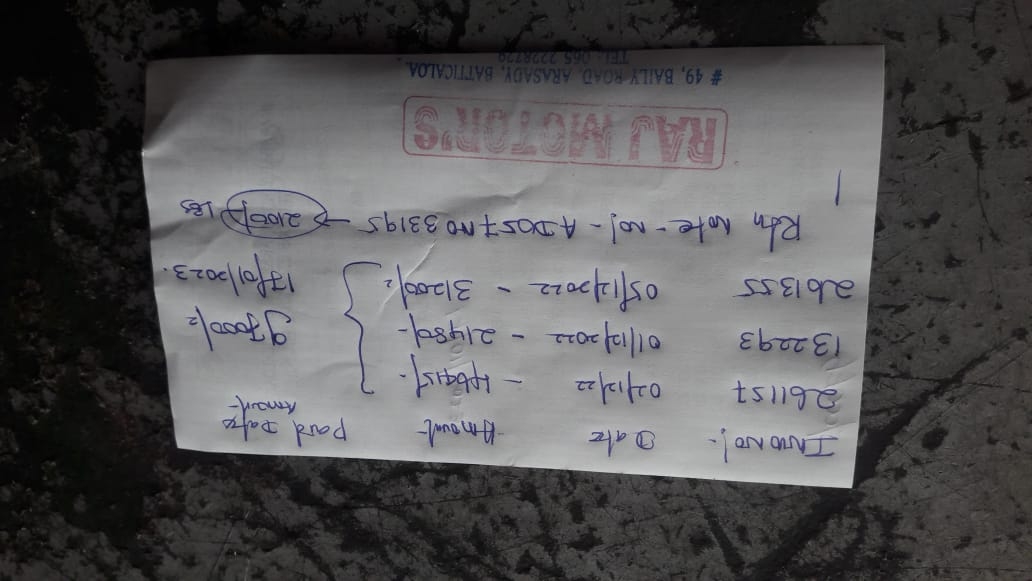 INVO NO/- Date -Amount- Paid Date
Amount-
261157 02/12/22 - 46915/-
132293 01/12/2022 - 21480/- 97000/=
261355 05/12/2022 - 31200/= 17/01/2023.
Rtn Note - NO/- 33195 - 2100/- Les
RAJ MOTOR'S
# 49, BAILY ROAD, ARASADY, BATTICALOA.
TEL: 065 2228729